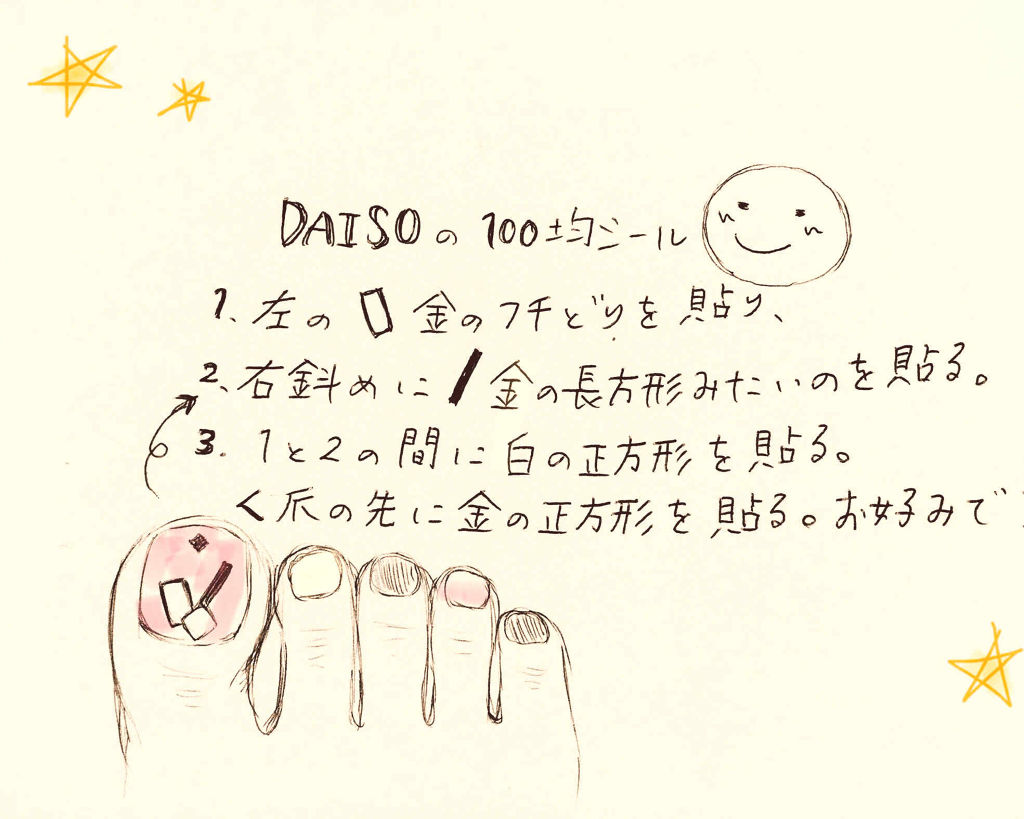 DAISOの100均シール
1. 左の 金のフチどりを貼り、
2、右斜めに 金の長方形みたいのを貼る。
3. 1と2の間に白の正方形を貼る。
く爪の先に金の正方形を貼る。お好みで